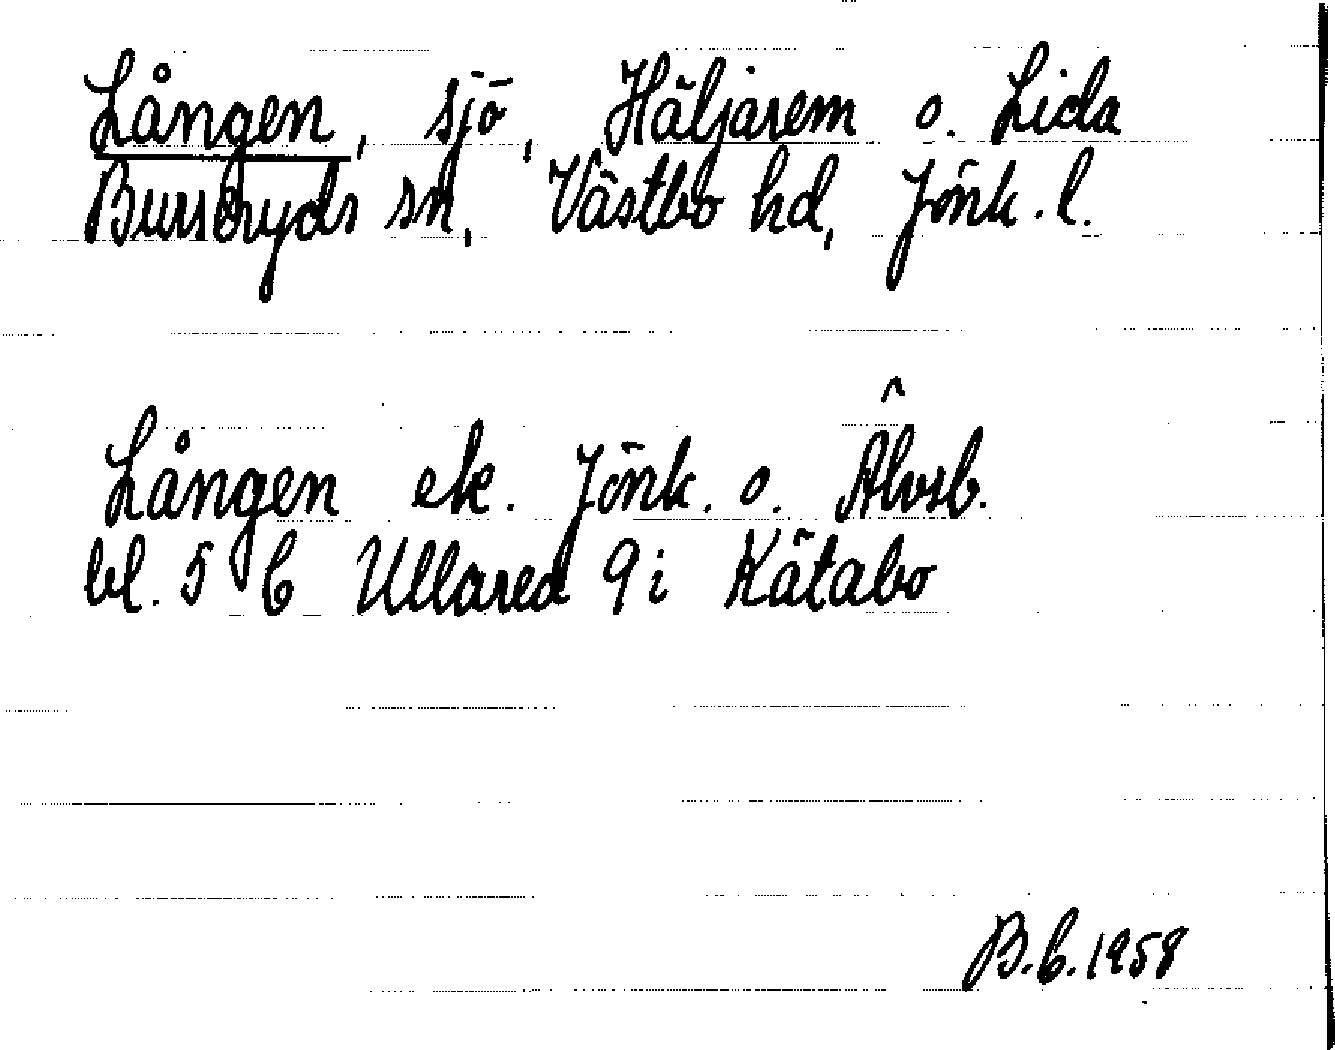 Lången, sjö, Häljarem o. Lida
Burseryds sn, Västbo hd, Jönk. l.
Lången ek. Jönk. o. Älvsb.
bl. 5 C Ullared 9 i Kätabo
B.C. 1958